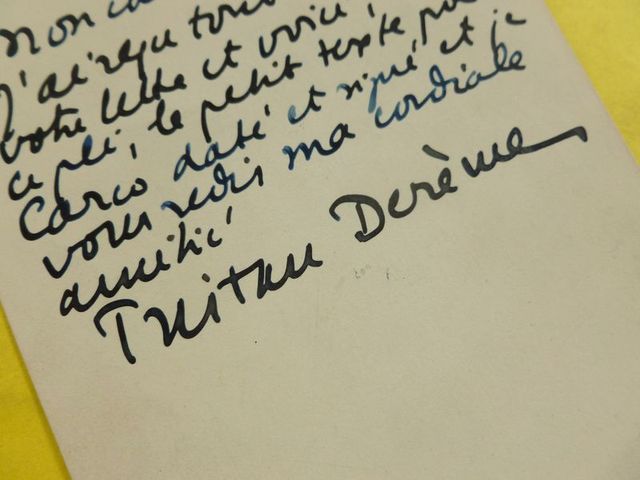 Mon
J'ai reçu tout
votre lettre et voici,
ce pli, le petit texte
Carco daté et signé et je
vous redis ma cordiale
amitié
Tristan Derème